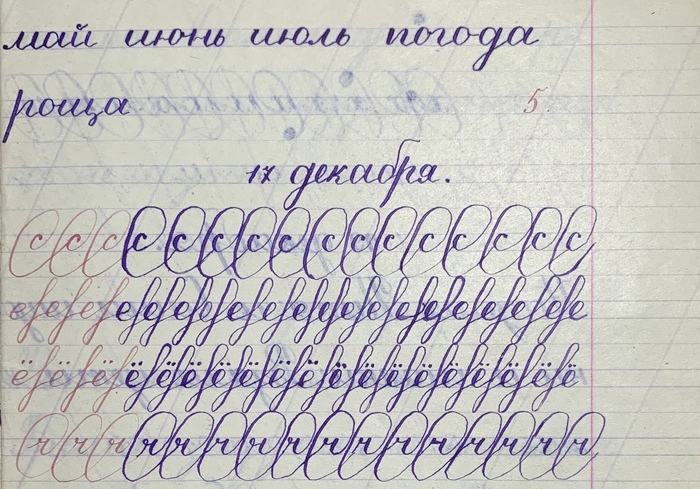 май июнь июль погода
роща 5
17 декабря.
с с с с с с с с с с с с с
е е е е е е е е е е е е е е е е
ё ё ё ё ё ё ё ё ё ё ё ё ё ё ё ё ё
ч ч ч ч ч ч ч ч ч ч ч ч ч